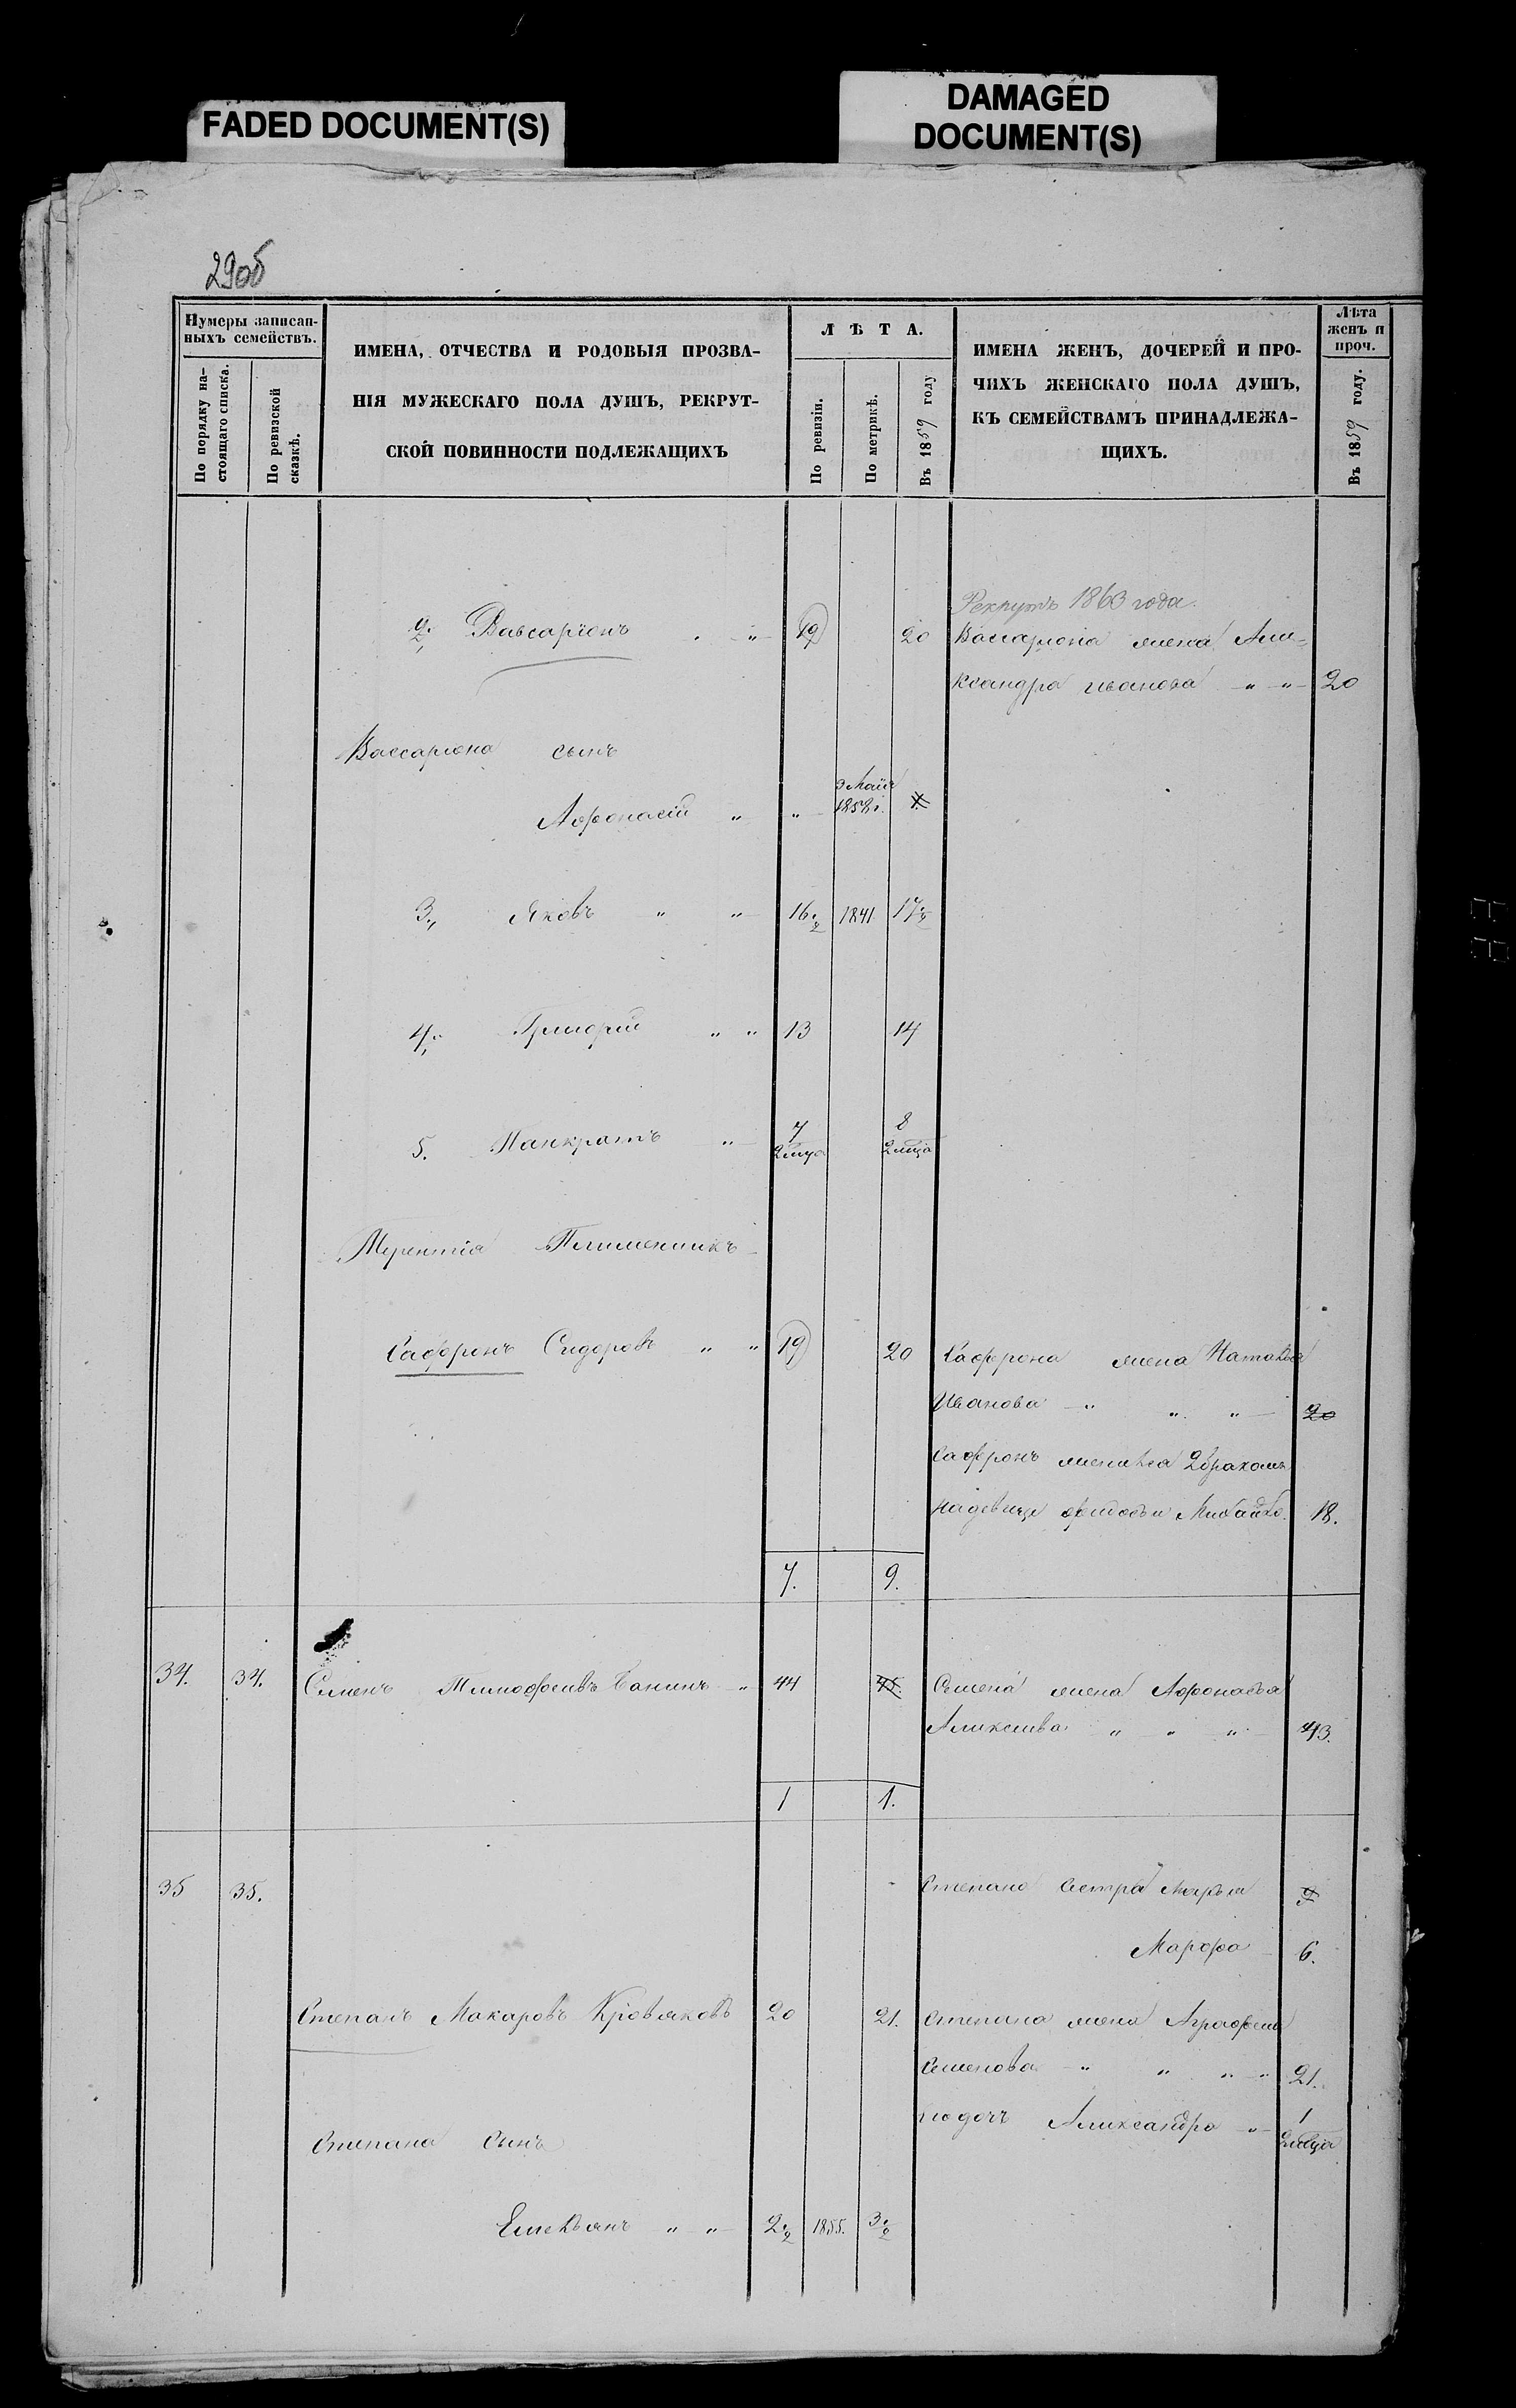 FADED DOCUMENT(S)
DAMAGED
DOCUMENT(S)
29об
Нумеры записан-
ныхъ семействъ.
По порядку на-
стоящаго списка.
По ревизской
сказкѣ.
ИМЕНА, ОТЧЕСТВА И РОДОВЫЯ ПРОЗВА-
НІЯ МУЖЕСКАГО ПОЛА ДУШЪ, РЕКРУТ-
СКОЙ ПОВИННОСТИ ПОДЛЕЖАЩИХЪ
Л Ѣ Т А.
По ревизіи.
По метрикѣ.
Въ 1859 году
ИМЕНА ЖЕНЪ, ДОЧЕРЕЙ И ПРО-
ЧИХЪ ЖЕНСКАГО ПОЛА ДУШЪ,
КЪ СЕМЕЙСТВАМЪ ПРИНАДЛЕЖА-
ЩИХЪ.
Лѣта
женъ и
проч.
Въ 1859 году.
Рекрутъ 1863 года.
2. Вассаріонъ " 19 20 Вассаріона жена Але-
ксандра иванова " " 20
Вассаріона сынъ
9 Маія
Афонасій " " 1858 г. 1.
3. Яковъ " " 16 ½ 1841 17 ½
4. Григорій " " 13 14
5. Панкратъ " 7 8
2 мца 2 мца
Терентія Племенникъ
Сафронъ Сидоровъ " " 19 20 Сафрона жена Наталья
Иванова " " " 20
Сафронъ женился 2 бракомъ
на девице Федосьи Михайло. 18.
7. 9.
34. 34. Семенъ Тимофеевъ Банинъ " 44 45. Семена жена Афонасья
Алексеева " " " 43.
1 1.
35 35. Степана сестра Марья 9
Марфа 6.
Степанъ Макаровъ Кровяковъ 20 21. Степана жена Аграфена
Семенова " " " " 21.
дочь Александра " 1
2 месеца
Степана Сынъ
Емельянъ " " 2 ½ 1855. 3 ½